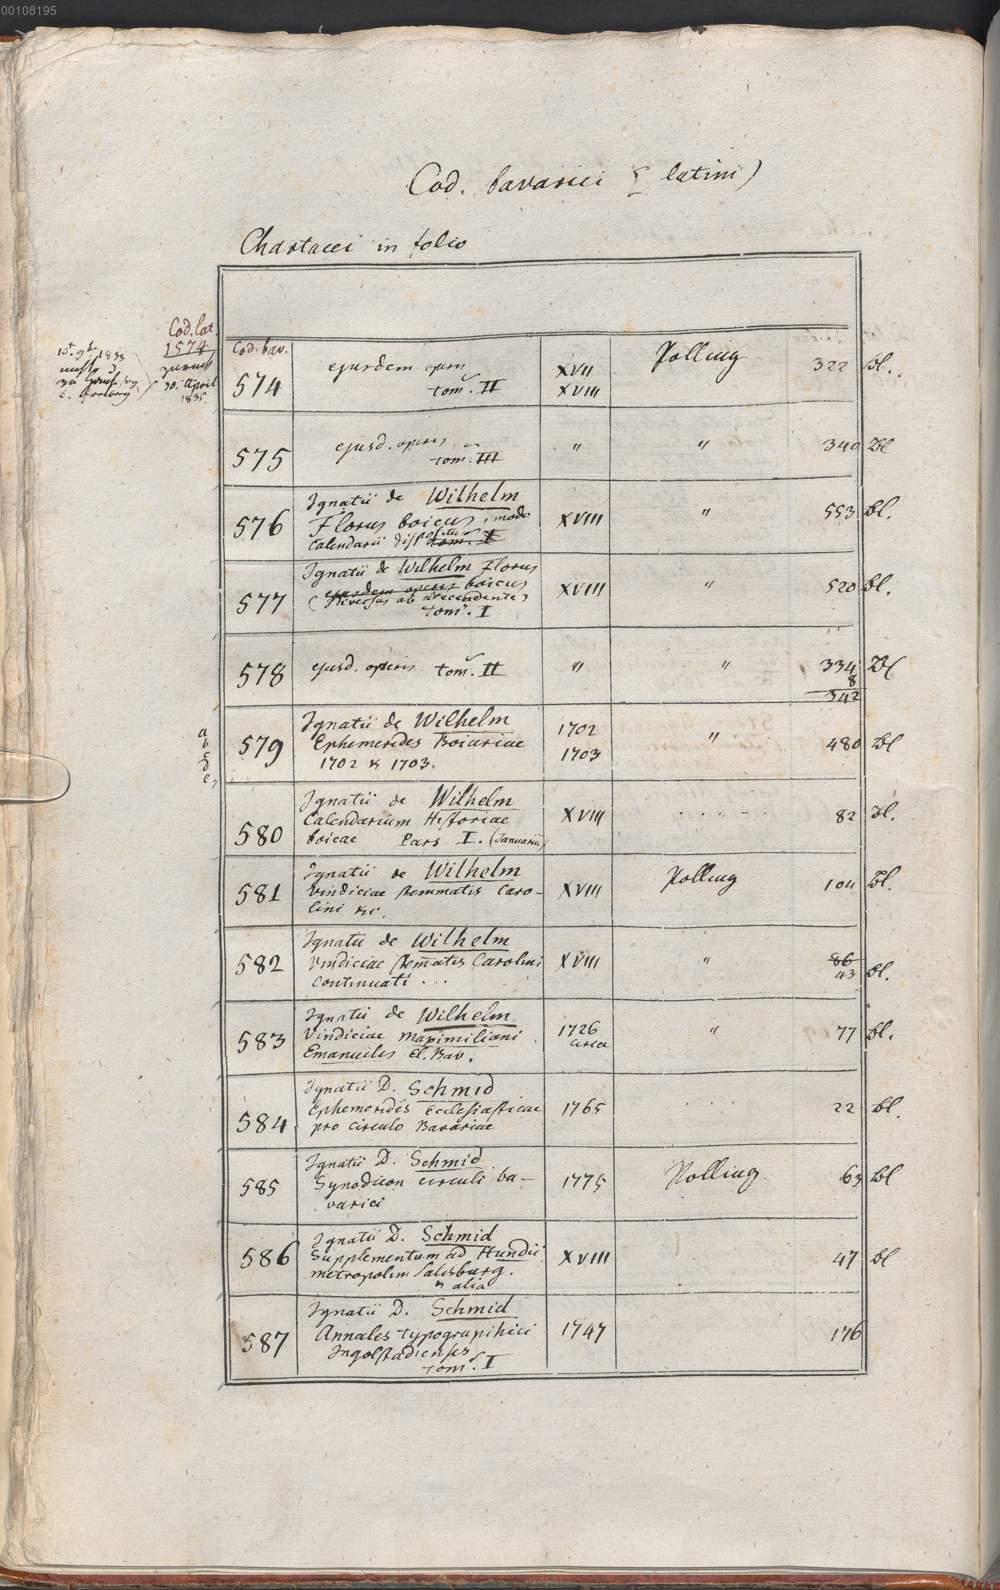 00108195
Cod. bavarici (latini)
Chartacei in folio
Cod. lat.
1574
zurück
30. April
1835.
1833
Cod. bav.
574
ejusdem operis
tom. II
XVII
XVIII
Polling
322 Bl.
575
ejusd. operis
tom. III
" " 340 Bl
576
Ignatii de Wilhelm
Florus boicus, modo
Calendarii dispositus
tom. I
XVIII " 553 Bl.
577
Ignatii de Wilhelm Florus
ejusdem operis boicus
(diversus ab antecedente)
tom. I
XVIII " 520 Bl.
578
ejusd. operis tom. II
" " 334 Bl
8
342
a
b
c
d
e,
579
Ignatii de Wilhelm
Ephemerides Boiariae
1702 & 1703.
1702
1703
" 480 Bl
580
Ignatii de Wilhelm
Calendarium Historiae
boicae Pars I. (Januarius)
XVIII 82 Bl.
581
Ignatii de Wilhelm
Vindiciae stemmatis Caro-
lini &c.
XVIII Polling 104 Bl.
582
Ignatii de Wilhelm
Vindiciae stem̄atis Carolini
continuati . . .
XVIII " 86
43 Bl.
583
Ignatii de Wilhelm
Vindiciae Maximiliani
Emanuelis El. Bav.
1726
circa
" 77 Bl.
584
Ignatii D. Schmid
Ephemerides Ecclesiasticae
pro circulo Bavariae
1765 22 Bl.
585
Ignatii D. Schmid
Synodicon circuli ba-
varici
1775 Polling 63 Bl
586
Ignatii D. Schmid
Supplementum ad Hundii
metropolim Salisburg.
& alia
XVIII 47 Bl
587
Ignatii D. Schmid
Annales typographici
Ingolstadienses
tom. I
1747 176